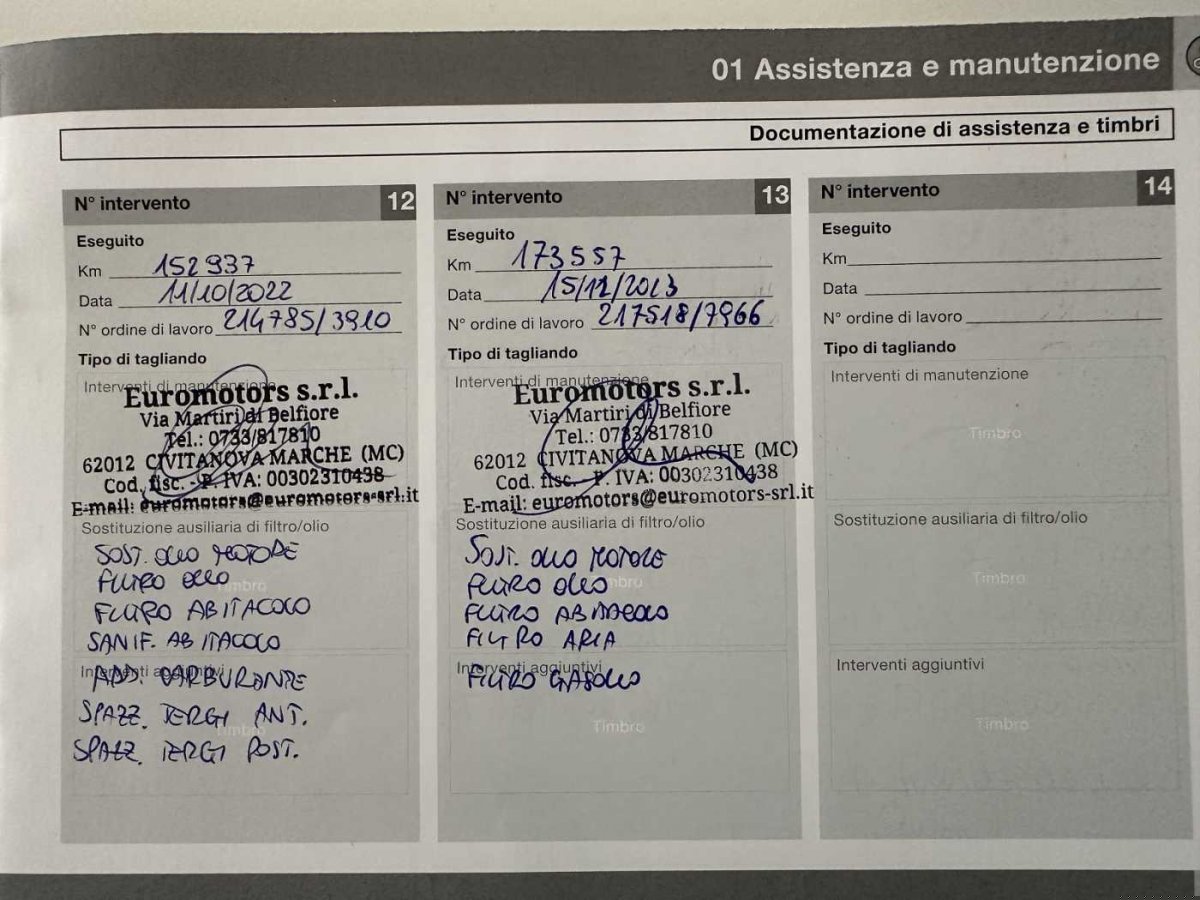 01 Assistenza e manutenzione
Documentazione di assistenza e timbri
N° intervento 12
Eseguito
Km 152937
Data 11/10/2022
N° ordine di lavoro 214785/3910
Tipo di tagliando
Interventi di manutenzione
Euromotors s.r.l.
Via Martiri di Belfiore
Tel.: 0733/817810
62012 CIVITANOVA MARCHE (MC)
Cod. fisc. - P. IVA: 00302310438
E-mail: euromotors@euromotors-srl.it
Sostituzione ausiliaria di filtro/olio
SOST. OLIO MOTORE
FILTRO OLIO
Timbro
FILTRO ABITACOLO
SANIF. ABITACOLO
Interventi aggiuntivi
ADD. CARBURANTE
SPAZZ. TERGI ANT.
Timbro
SPAZZ. TERGI POST.
N° intervento 13
Eseguito
Km 173557
Data 15/12/2023
N° ordine di lavoro 217518/7966
Tipo di tagliando
Interventi di manutenzione
Euromotors s.r.l.
Via Martiri di Belfiore
Tel.: 0733/817810
62012 CIVITANOVA MARCHE (MC)
Cod. fisc. - P. IVA: 00302310438
E-mail: euromotors@euromotors-srl.it
Sostituzione ausiliaria di filtro/olio
SOST. OLIO MOTORE
FILTRO OLIO
Timbro
FILTRO ABITACOLO
FILTRO ARIA
Interventi aggiuntivi
FILTRO GASOLIO
Timbro
N° intervento 14
Eseguito
Km
Data
N° ordine di lavoro
Tipo di tagliando
Interventi di manutenzione
Timbro
Sostituzione ausiliaria di filtro/olio
Timbro
Interventi aggiuntivi
Timbro